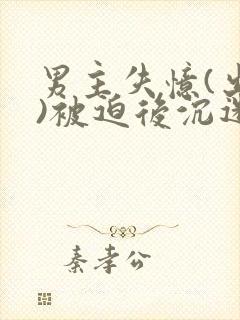 男主失憶(
)被迫後沉
秦孝公